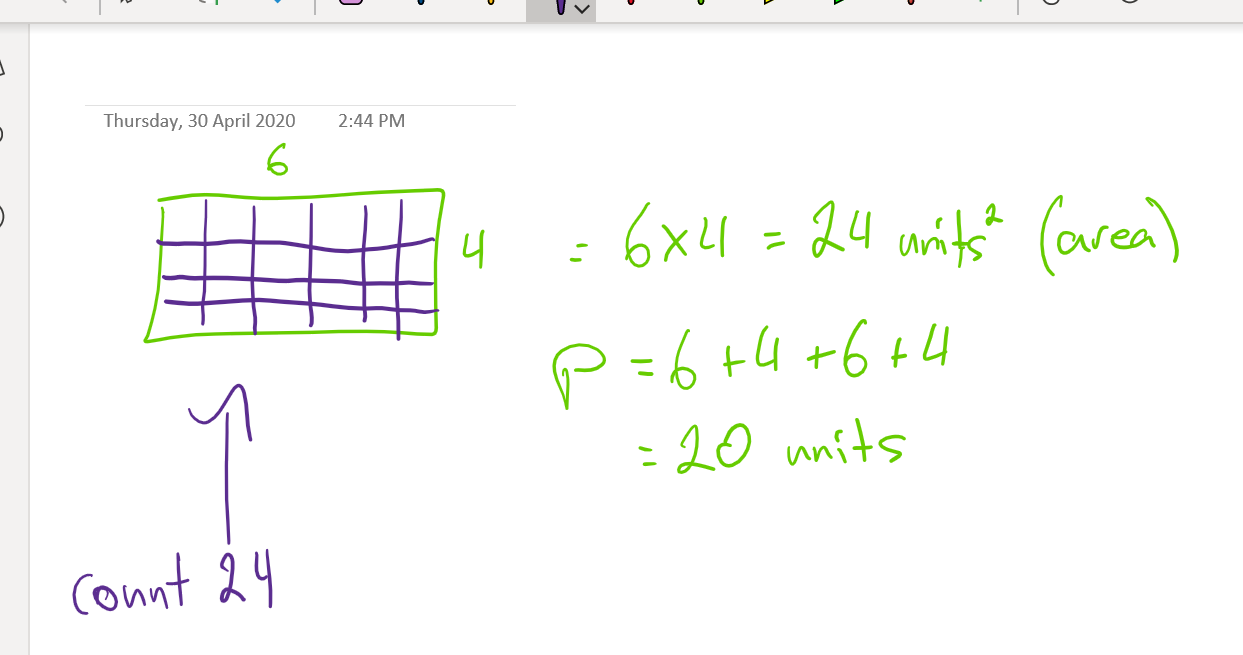 Thursday, 30 April 2020 2:44 PM
6
4 = 6×4 = 24 units² (area)
P = 6 + 4 + 6 + 4
= 20 units
count 24